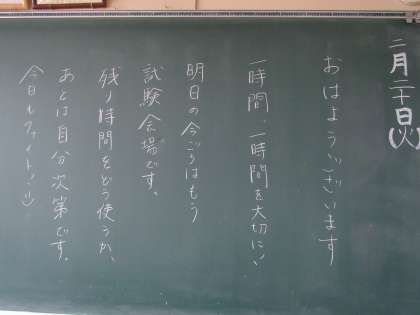 二月二十日(火)
おはようございます
一時間、一時間を大切に!
明日の今ごろはもう
試験会場です。
残り時間をどう使うか、
あとは自分次第です。
今日もファイト!!